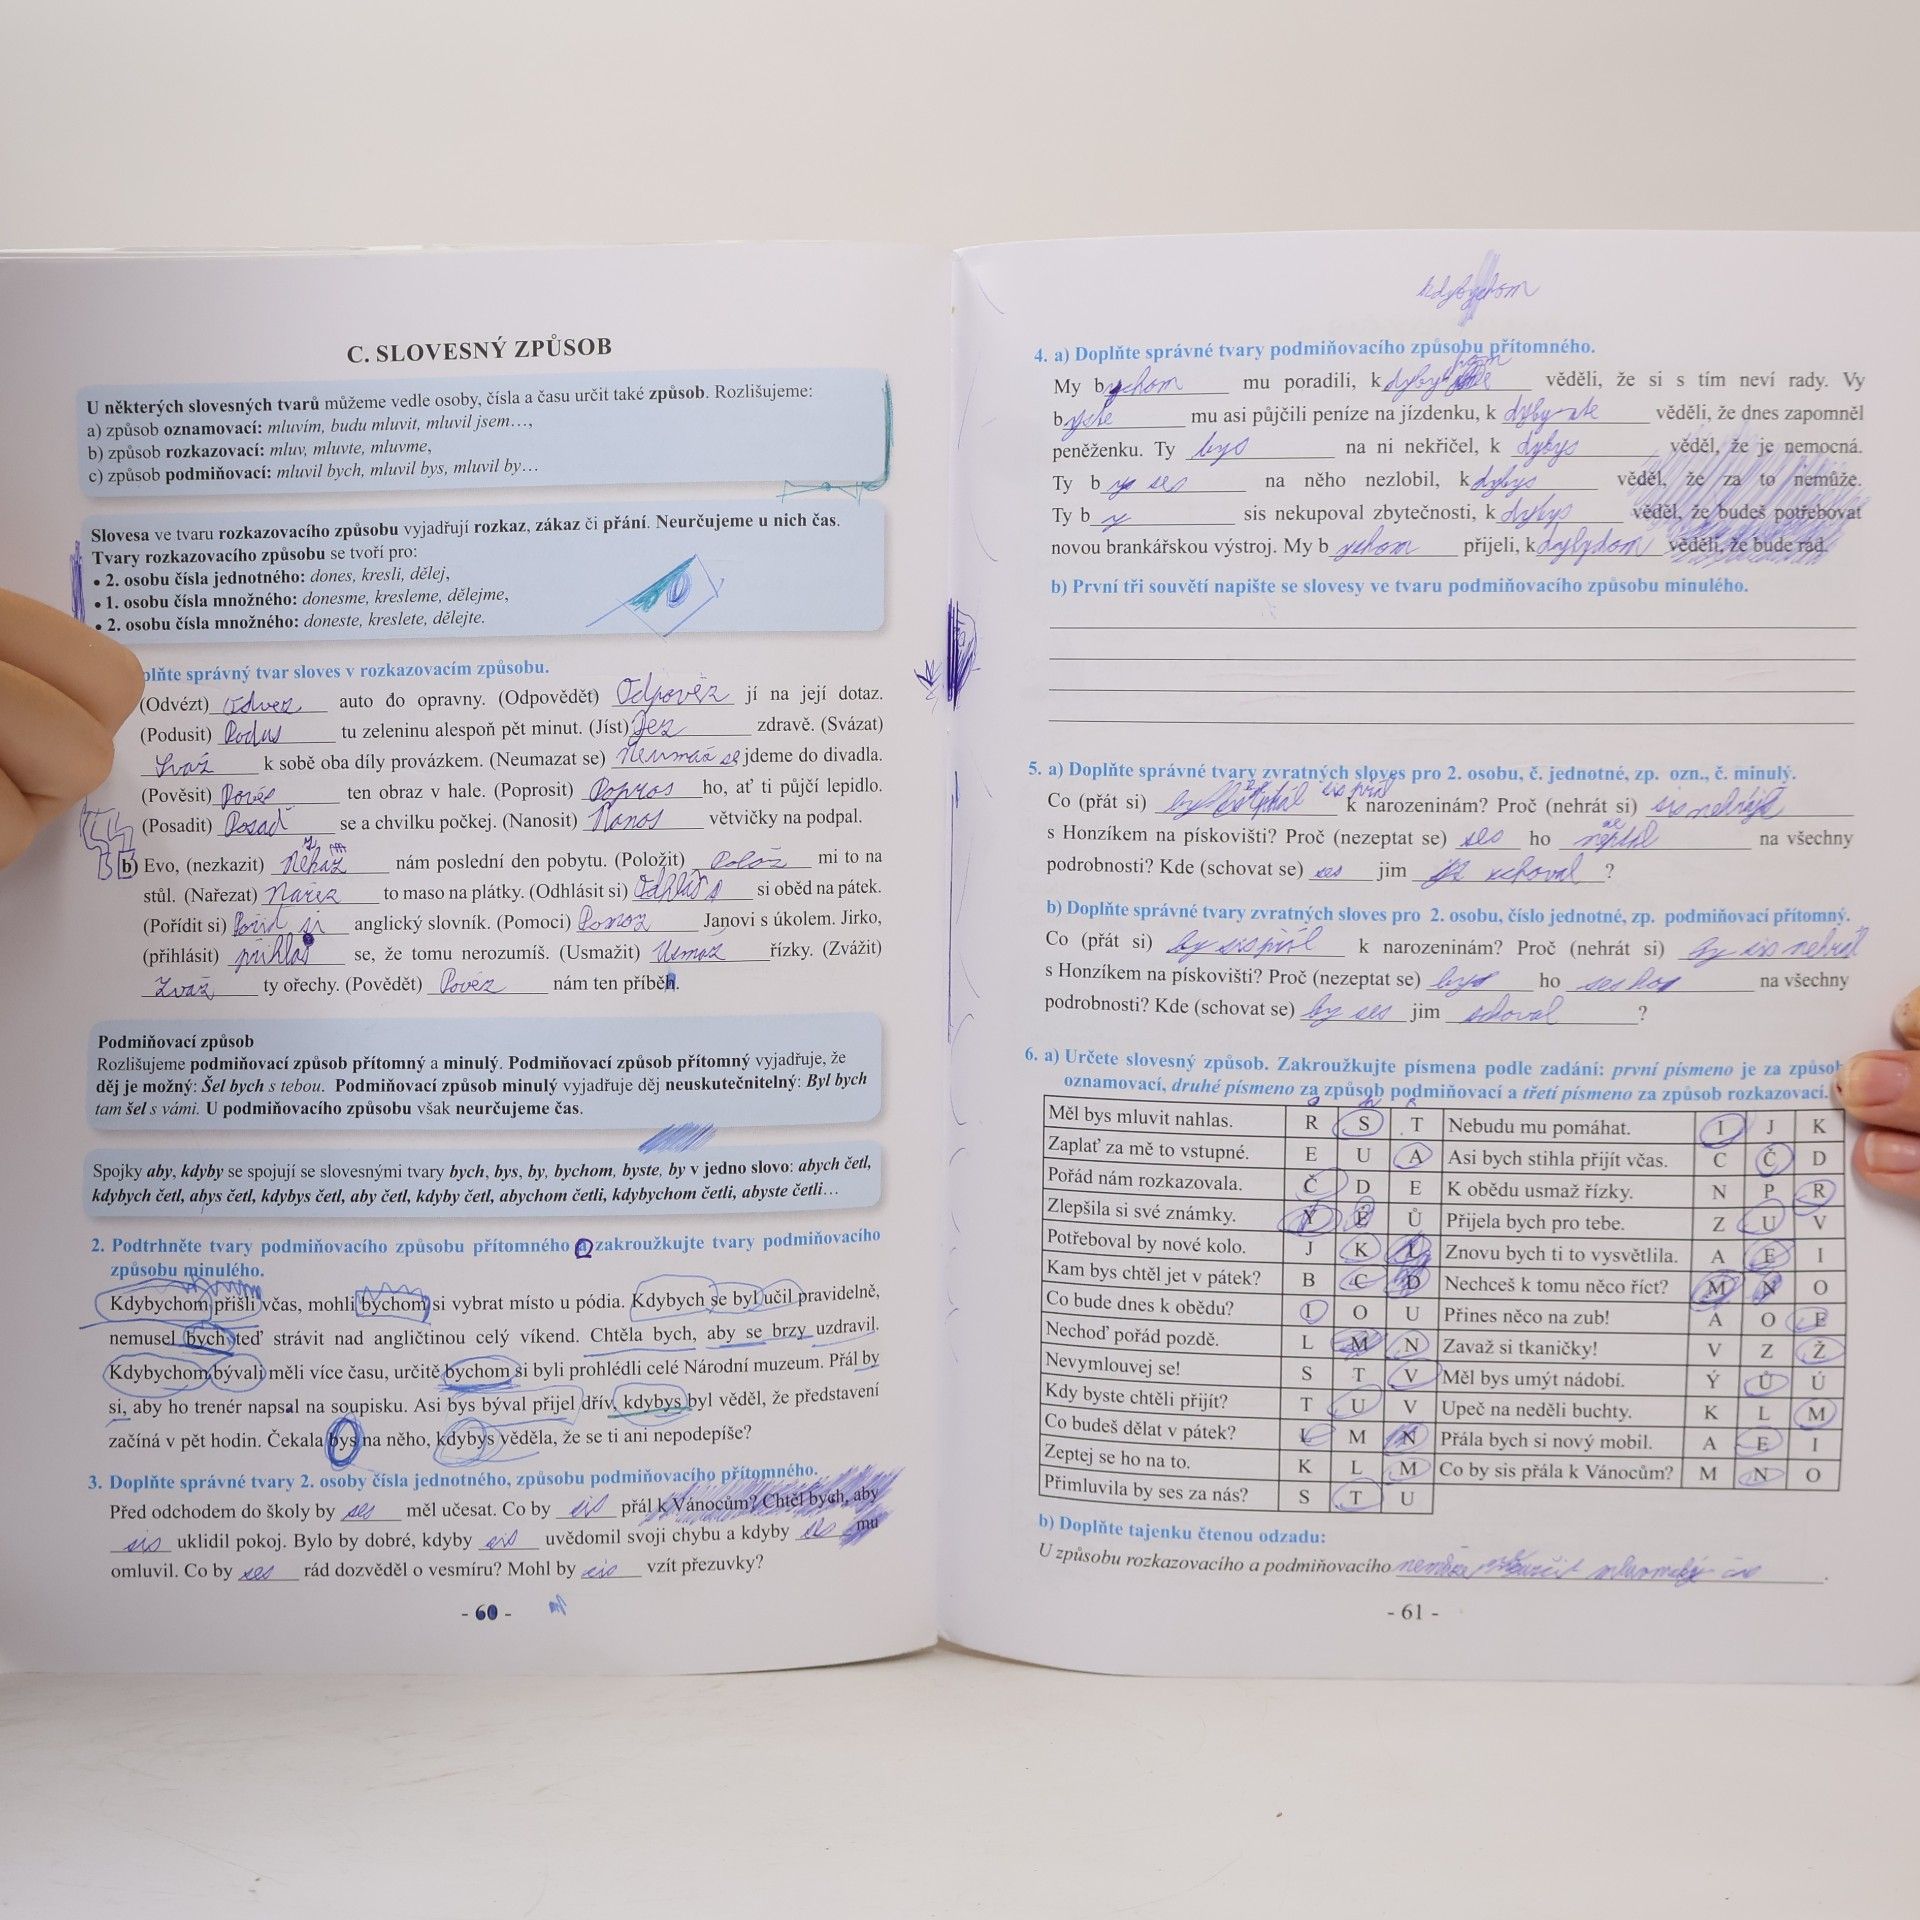 C. SLOVESNÝ ZPŮSOB
U některých slovesných tvarů můžeme vedle osoby, čísla a času určit také způsob. Rozlišujeme:
a) způsob oznamovací: mluvím, budu mluvit, mluvil jsem…,
b) způsob rozkazovací: mluv, mluvte, mluvme,
c) způsob podmiňovací: mluvil bych, mluvil bys, mluvil by…
Slovesa ve tvaru rozkazovacího způsobu vyjadřují rozkaz, zákaz či přání. Neurčujeme u nich čas.
Tvary rozkazovacího způsobu se tvoří pro:
• 2. osobu čísla jednotného: dones, kresli, dělej,
• 1. osobu čísla množného: donesme, kresleme, dělejme,
• 2. osobu čísla množného: doneste, kreslete, dělejte.
plňte správný tvar sloves v rozkazovacím způsobu.
(Odvézt) Odvez auto do opravny. (Odpovědět) Odpověz jí na její dotaz.
(Podusit) Podus tu zeleninu alespoň pět minut. (Jíst) Jez zdravě. (Svázat)
Svaž k sobě oba díly provázkem. (Neumazat se) Neumaž se jdeme do divadla.
(Pověsit) Pověs ten obraz v hale. (Poprosit) Popros ho, ať ti půjčí lepidlo.
(Posadit) Posaď se a chvilku počkej. (Nanosit) Nanos větvičky na podpal.
b) Evo, (nezkazit) nám poslední den pobytu. (Položit) Polož mi to na
stůl. (Nařezat) Nařez to maso na plátky. (Odhlásit si) si oběd na pátek.
(Pořídit si) Pořiď si anglický slovník. (Pomoci) Pomoz Janovi s úkolem. Jirko,
(přihlásit) přihlas se, že tomu nerozumíš. (Usmažit) Usmaž řízky. (Zvážit)
Zvaž ty ořechy. (Povědět) Pověz nám ten příběh.
Podmiňovací způsob
Rozlišujeme podmiňovací způsob přítomný a minulý. Podmiňovací způsob přítomný vyjadřuje, že
děj je možný: Šel bych s tebou. Podmiňovací způsob minulý vyjadřuje děj neuskutečnitelný: Byl bych
tam šel s vámi. U podmiňovacího způsobu však neurčujeme čas.
Spojky aby, kdyby se spojují se slovesnými tvary bych, bys, by, bychom, byste, by v jedno slovo: abych četl,
kdybych četl, abys četl, kdybys četl, aby četl, kdyby četl, abychom četli, kdybychom četli, abyste četli…
2. Podtrhněte tvary podmiňovacího způsobu přítomného a zakroužkujte tvary podmiňovacího
způsobu minulého.
Kdybychom přišli včas, mohli bychom si vybrat místo u pódia. Kdybych se byl učil pravidelně,
nemusel bych teď strávit nad angličtinou celý víkend. Chtěla bych, aby se brzy uzdravil.
Kdybychom bývali měli více času, určitě bychom si byli prohlédli celé Národní muzeum. Přál by
si, aby ho trenér napsal na soupisku. Asi bys býval přijel dřív, kdybys byl věděl, že představení
začíná v pět hodin. Čekala bys na něho, kdybys věděla, že se ti ani nepodepíše?
3. Doplňte správné tvary 2. osoby čísla jednotného, způsobu podmiňovacího přítomného.
Před odchodem do školy by ses měl učesat. Co by sis přál k Vánocům? Chtěl bych, aby
sis uklidil pokoj. Bylo by dobré, kdyby sis uvědomil svoji chybu a kdyby ses mu
omluvil. Co by ses rád dozvěděl o vesmíru? Mohl by sis vzít přezuvky?
- 60 -
kdybychom
4. a) Doplňte správné tvary podmiňovacího způsobu přítomného.
My bychom mu poradili, k věděli, že si s tím neví rady. Vy
byste mu asi půjčili peníze na jízdenku, k dybyste věděli, že dnes zapomněl
peněženku. Ty bys na ni nekřičel, k dybys věděl, že je nemocná.
Ty b na něho nezlobil, kdybys věděl, že za to nemůže.
Ty by sis nekupoval zbytečnosti, kdybys věděl, že budeš potřebovat
novou brankářskou výstroj. My bychom přijeli, k věděli, že bude rád.
b) První tři souvětí napište se slovesy ve tvaru podmiňovacího způsobu minulého.
5. a) Doplňte správné tvary zvratných sloves pro 2. osobu, č. jednotné, zp. ozn., č. minulý.
Co (přát si) sis přál k narozeninám? Proč (nehrát si) sis nehrál
s Honzíkem na pískovišti? Proč (nezeptat se) ses ho na všechny
podrobnosti? Kde (schovat se) ses jim schoval ?
b) Doplňte správné tvary zvratných sloves pro 2. osobu, číslo jednotné, zp. podmiňovací přítomný.
Co (přát si) by sis přál k narozeninám? Proč (nehrát si) by sis nehrál
s Honzíkem na pískovišti? Proč (nezeptat se) ho na všechny
podrobnosti? Kde (schovat se) by ses jim schoval ?
6. a) Určete slovesný způsob. Zakroužkujte písmena podle zadání: první písmeno je za způsob
oznamovací, druhé písmeno za způsob podmiňovací a třetí písmeno za způsob rozkazovací.
Měl bys mluvit nahlas. R S T Nebudu mu pomáhat. I J K
Zaplať za mě to vstupné. E U A Asi bych stihla přijít včas. C Č D
Pořád nám rozkazovala. Č D E K obědu usmaž řízky. N P R
Zlepšila si své známky. Ý É Ů Přijela bych pro tebe. Z U V
Potřeboval by nové kolo. J K L Znovu bych ti to vysvětlila. A E I
Kam bys chtěl jet v pátek? B C D Nechceš k tomu něco říct? M N O
Co bude dnes k obědu? I O U Přines něco na zub! A O E
Nechoď pořád pozdě. L M N Zavaž si tkaničky! V Z Ž
Nevymlouvej se! S T V Měl bys umýt nádobí. Ý Ů Ú
Kdy byste chtěli přijít? T U V Upeč na neděli buchty. K L M
Co budeš dělat v pátek? L M N Přála bych si nový mobil. A E I
Zeptej se ho na to. K L M Co by sis přála k Vánocům? M N O
Přimluvila by ses za nás? S T U
b) Doplňte tajenku čtenou odzadu:
U způsobu rozkazovacího a podmiňovacího
- 61 -